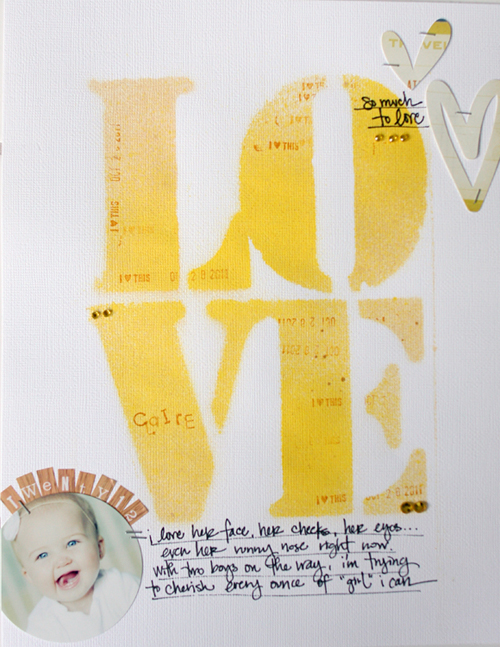 LO
VE
so much
to love
I ♥ THIS
I ♥ THIS
OCT 28 2011
I ♥ THIS
I ♥ THIS
OCT 28 2011
OCT 28 2011
OCT 28 2011
I ♥ THIS
I ♥ THIS
Caire
TWENTY12
i love her face, her cheeks, her eyes...
even her runny nose right now.
with two boys on the way, i'm trying
to cherish every ounce of "girl" i can